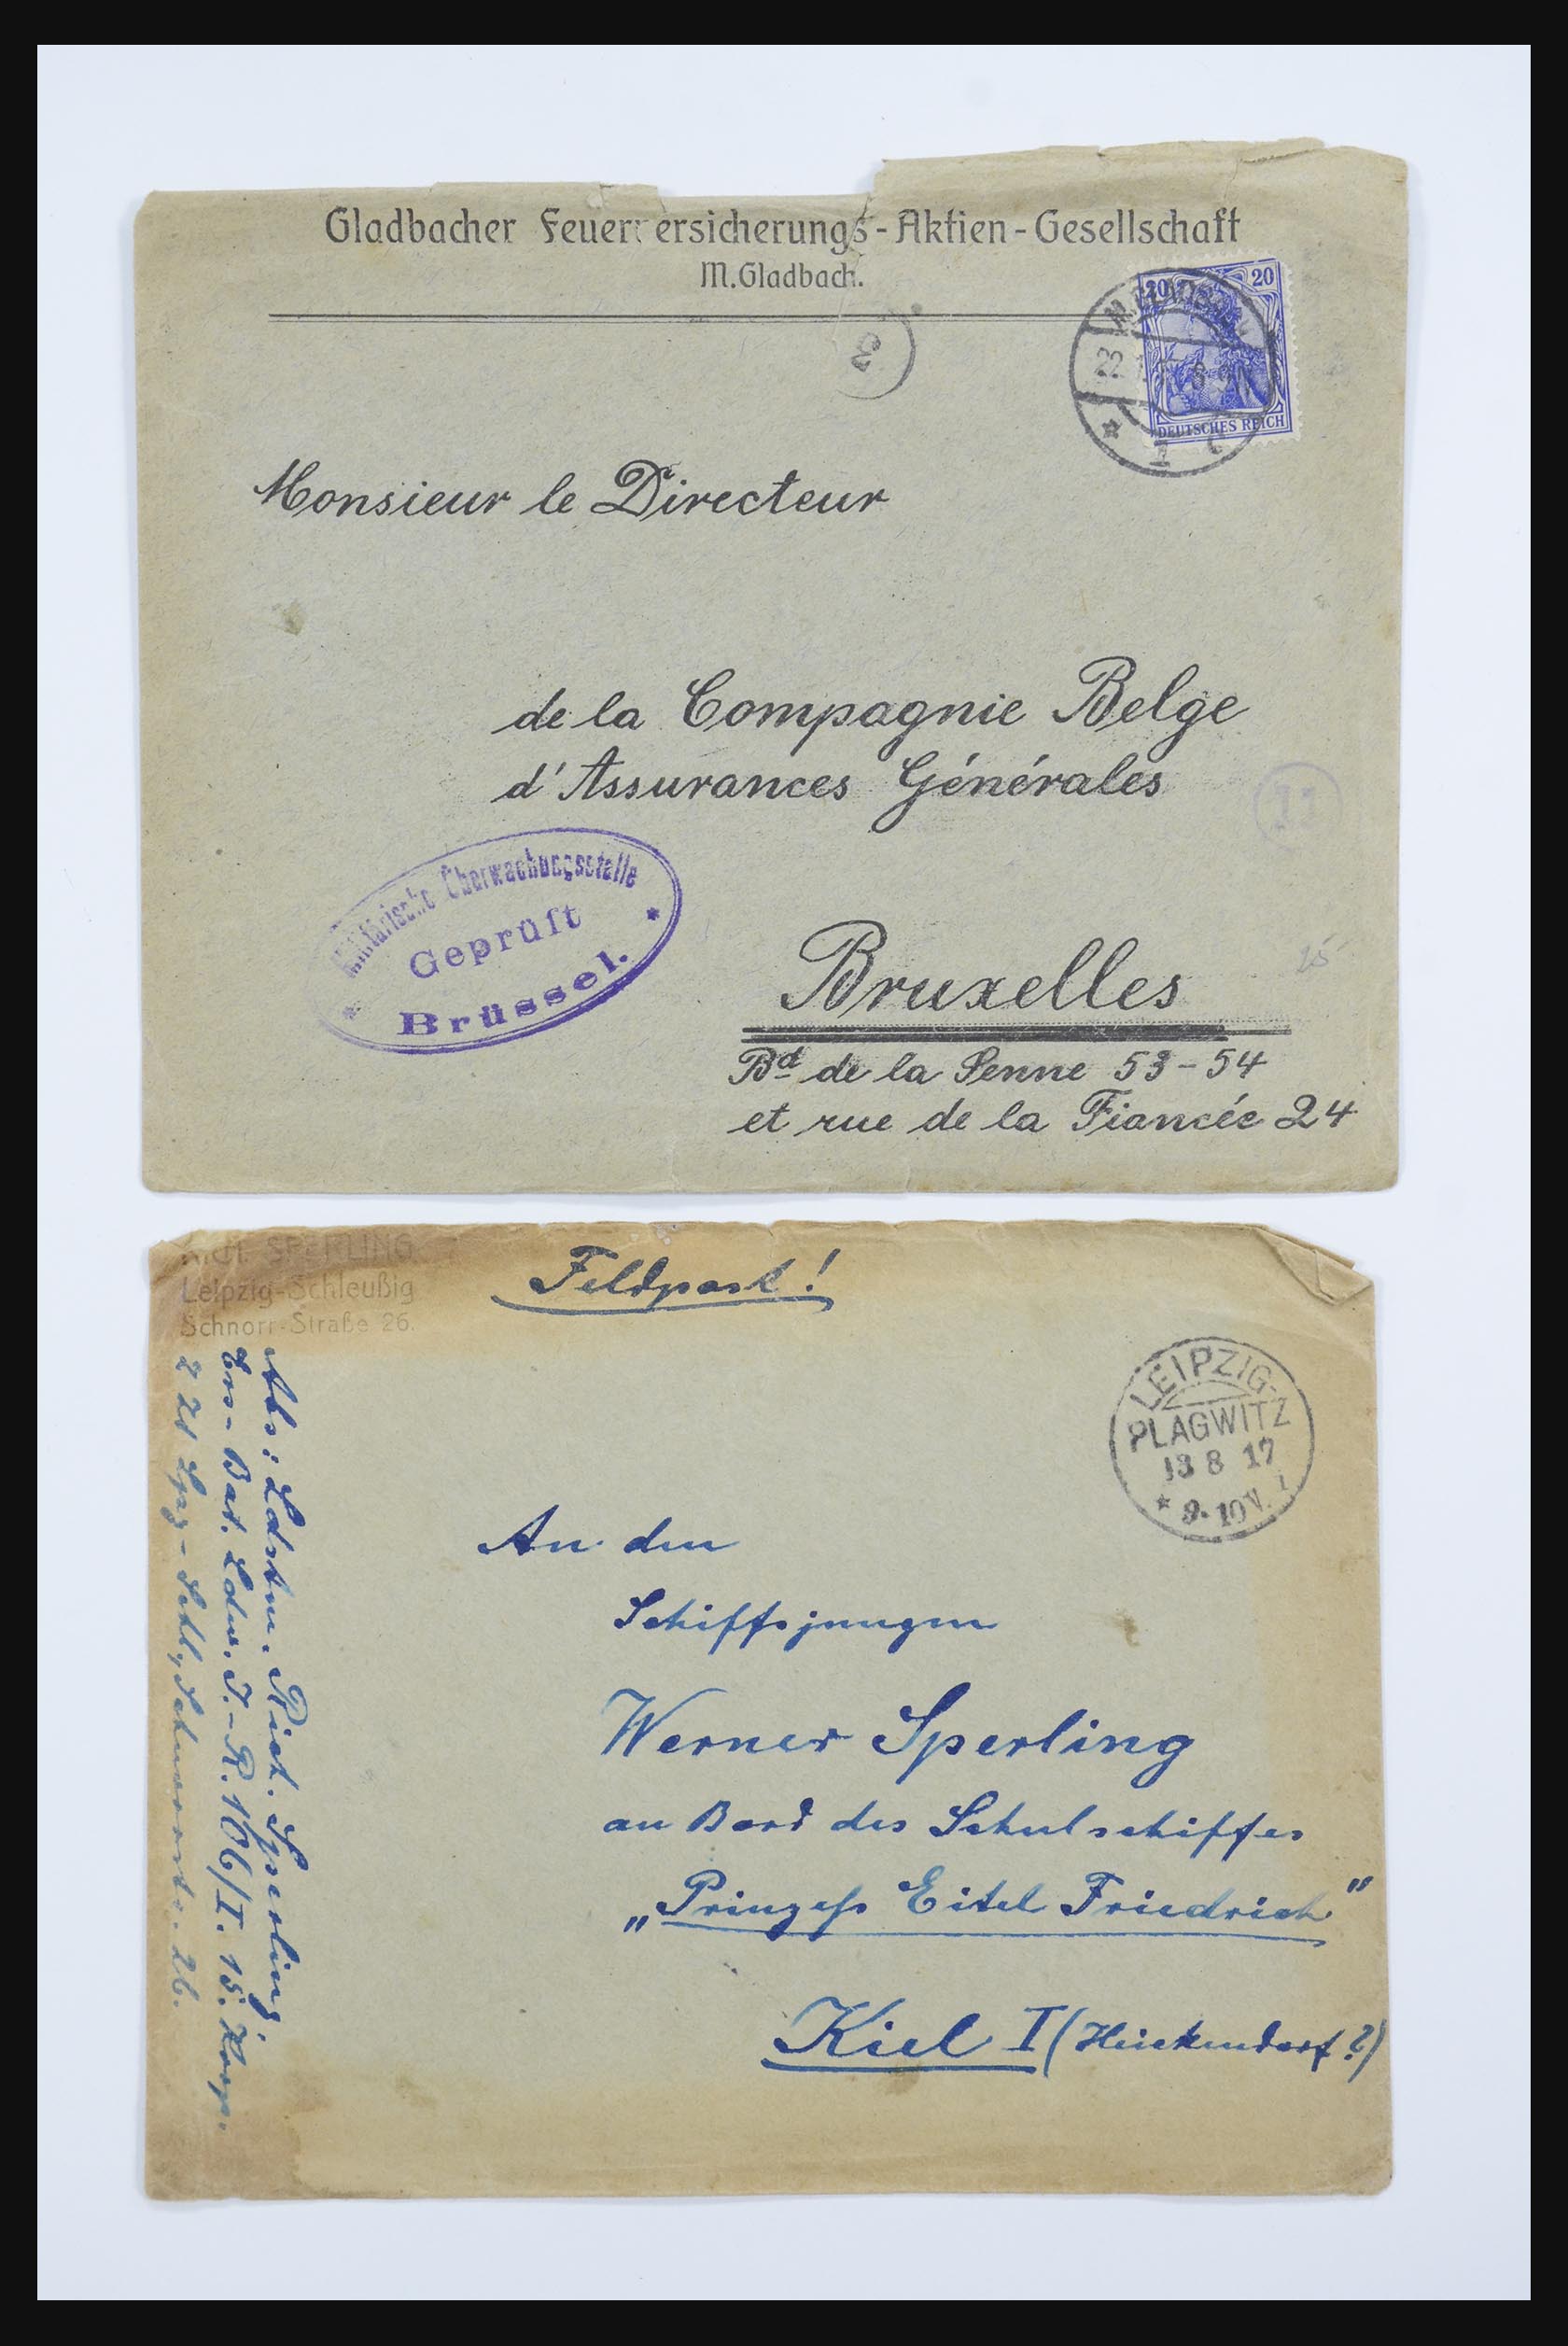 Gladbacher Feuerversicherungs-Aktien-Gesellschaft
M.Gladbach.
20 20
DEUTSCHES REICH
M.GLADBACH
22
3
Monsieur le Directeur
de la Compagnie Belge
d'Assurances Générales
Militärische Überwachungsstelle
Geprüft
Brüssel.
Bruxelles
25
Bd de la Senne 53-54
et rue de la Fiancée 24
SPERLING
Leipzig-Schleußig
Schnorr-Straße 26.
Feldpost!
LEIPZIG-
PLAGWITZ
13 8 17
* 9-10V.
Abs: Ldstm. Rich. Sperling
Ers-Bat. Ldw. I.-R. 106/I. 15. Korp.
Lpz-Schl, Schnorrstr. 26.
An den
Schiffsjungen
Werner Sperling
an Bord des Schulschiffes
„Prinzeß Eitel Friedrich"
Kiel I (Heickendorf?)